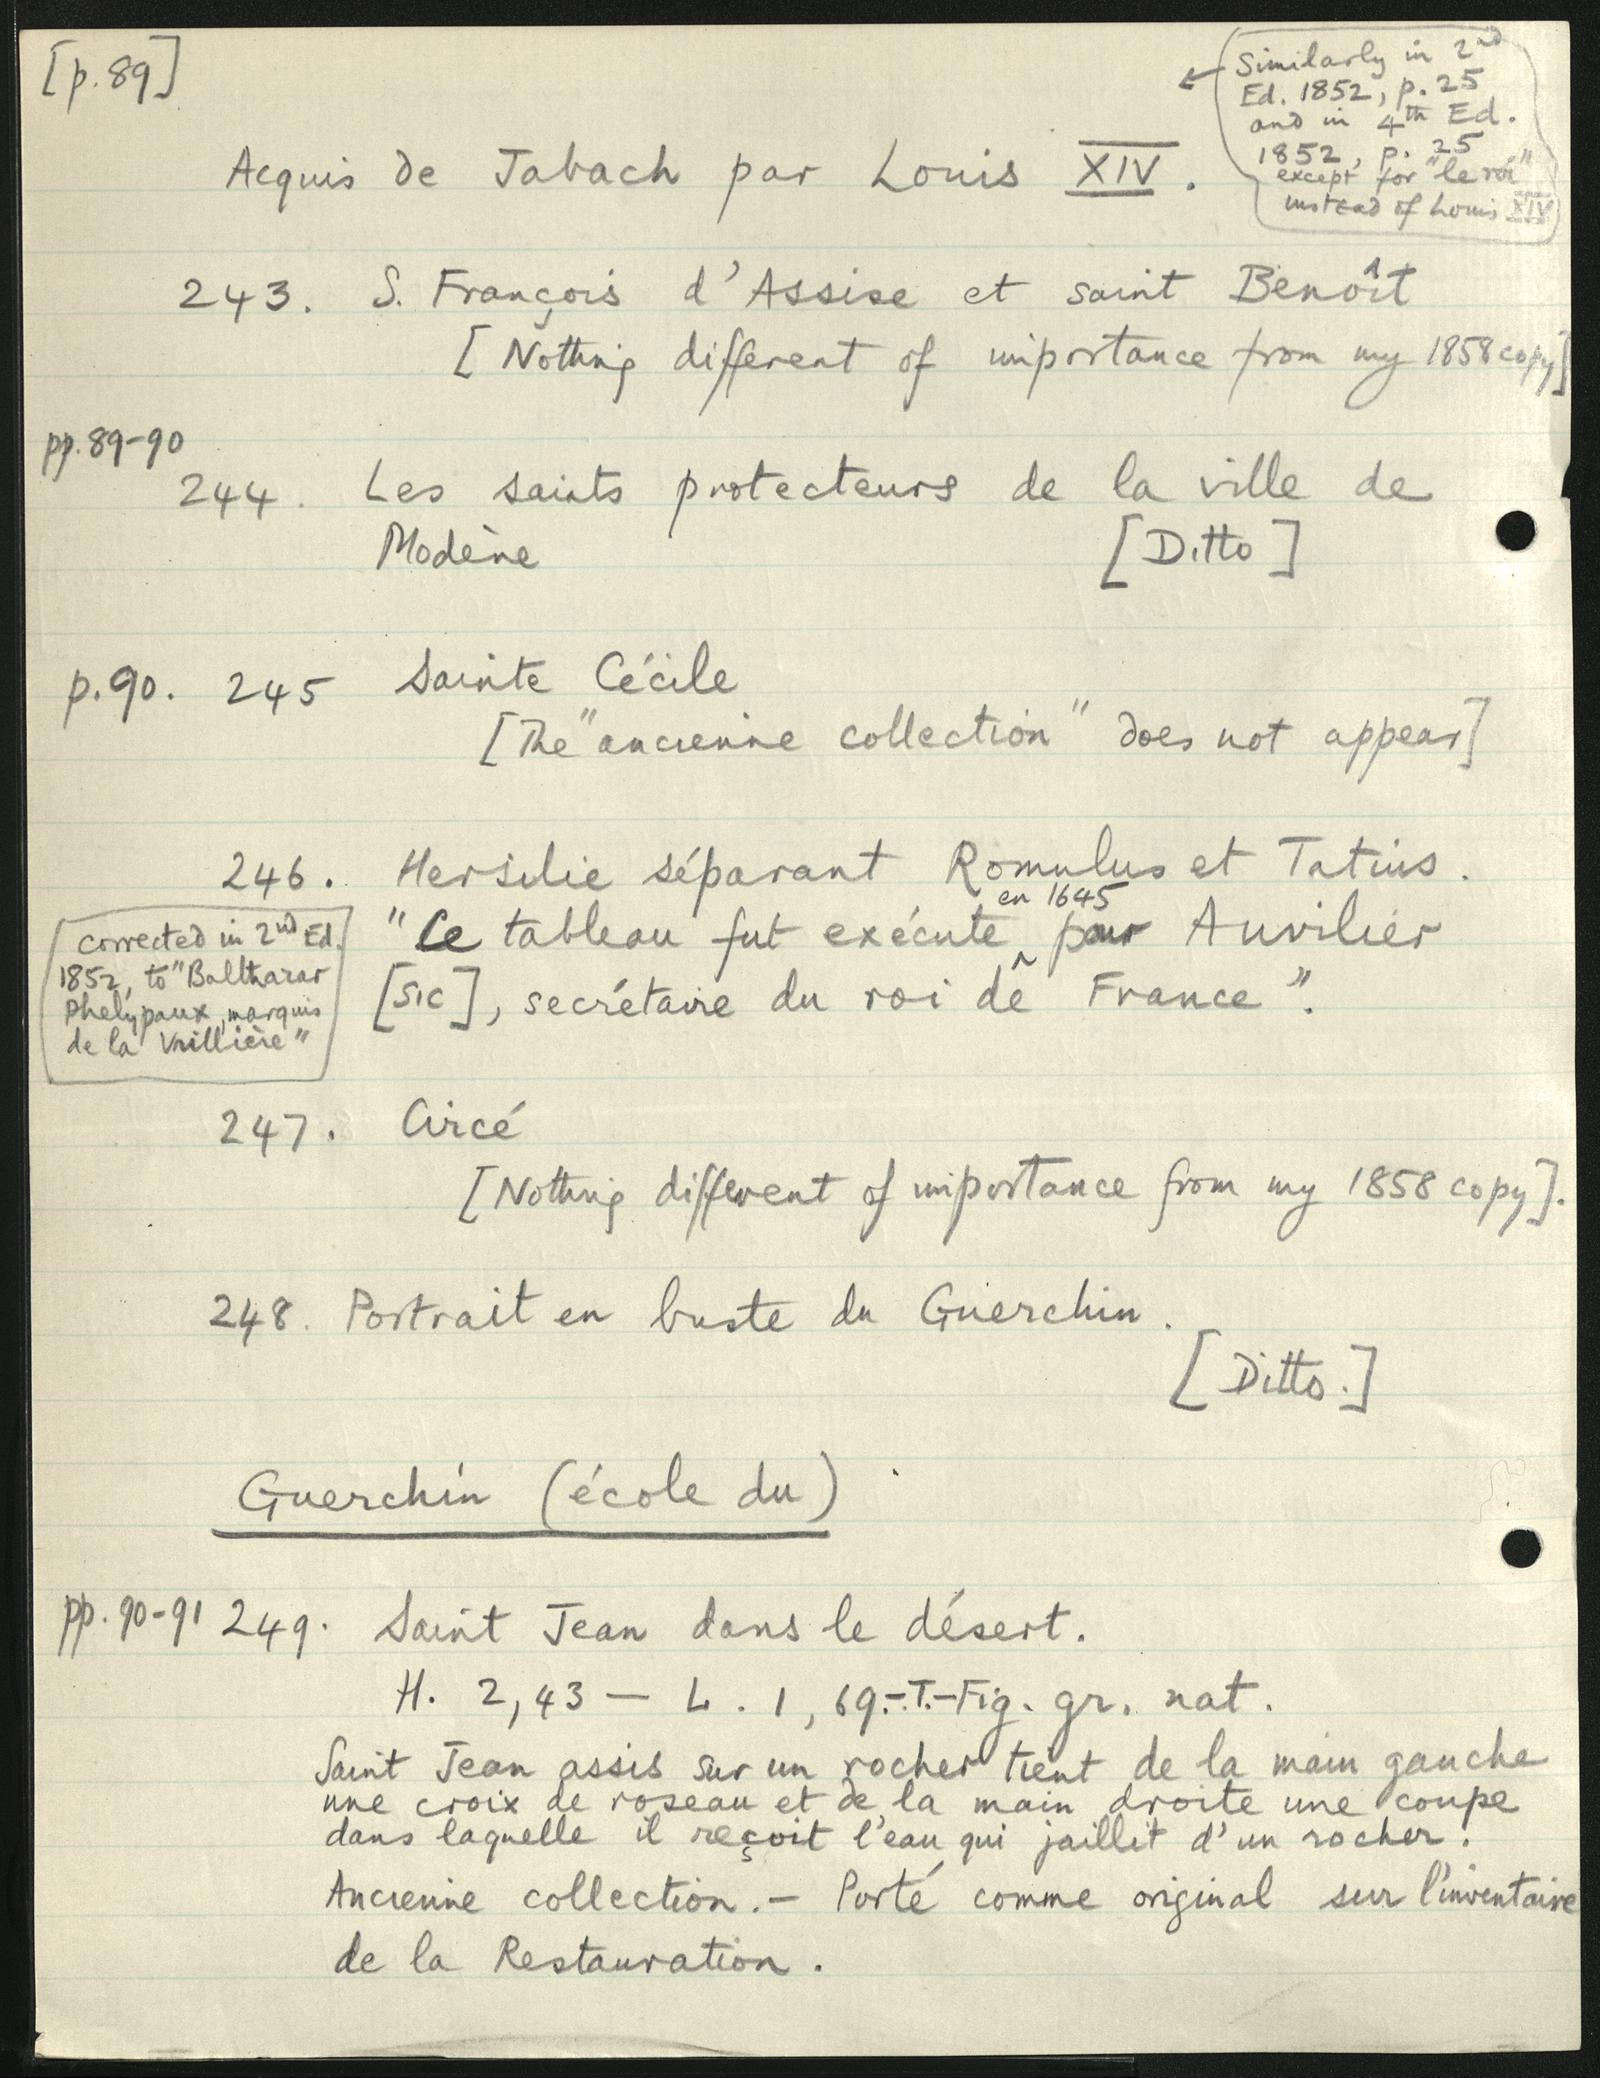 [p. 89]
← Similarly in 2nd
Ed. 1852, p. 25
and in 4th Ed.
1852, p. 25
except for "le roi"
instead of Louis XIV
Acquis de Jabach par Louis XIV.
243. S. François d'Assise et saint Benoît
[Nothing different of importance from my 1858 copy]
pp. 89-90
244. Les saints protecteurs de la ville de
Modène [Ditto]
p. 90. 245 Sainte Cécile
[The "ancienne collection" does not appear]
246. Hersilie séparant Romulus et Tatius.
en 1645
"Ce tableau fut exécuté ^ pour Auvilier
[sic], secrétaire du roi de France".
corrected in 2nd Ed.
1852, to "Balthazar
Phelypaux, marquis
de la Vrillière"
247. Circé
[Nothing different of importance from my 1858 copy].
248. Portrait en buste du Guerchin.
[Ditto.]
Guerchin (école du)
pp. 90-91 249. Saint Jean dans le désert.
H. 2,43 — L. 1,69.-T.-Fig. gr. nat.
Saint Jean assis sur un rocher tient de la main gauche
une croix de roseau et de la main droite une coupe
dans laquelle il reçoit l'eau qui jaillit d'un rocher.
Ancienne collection. — Porté comme original sur l'inventaire
de la Restauration.